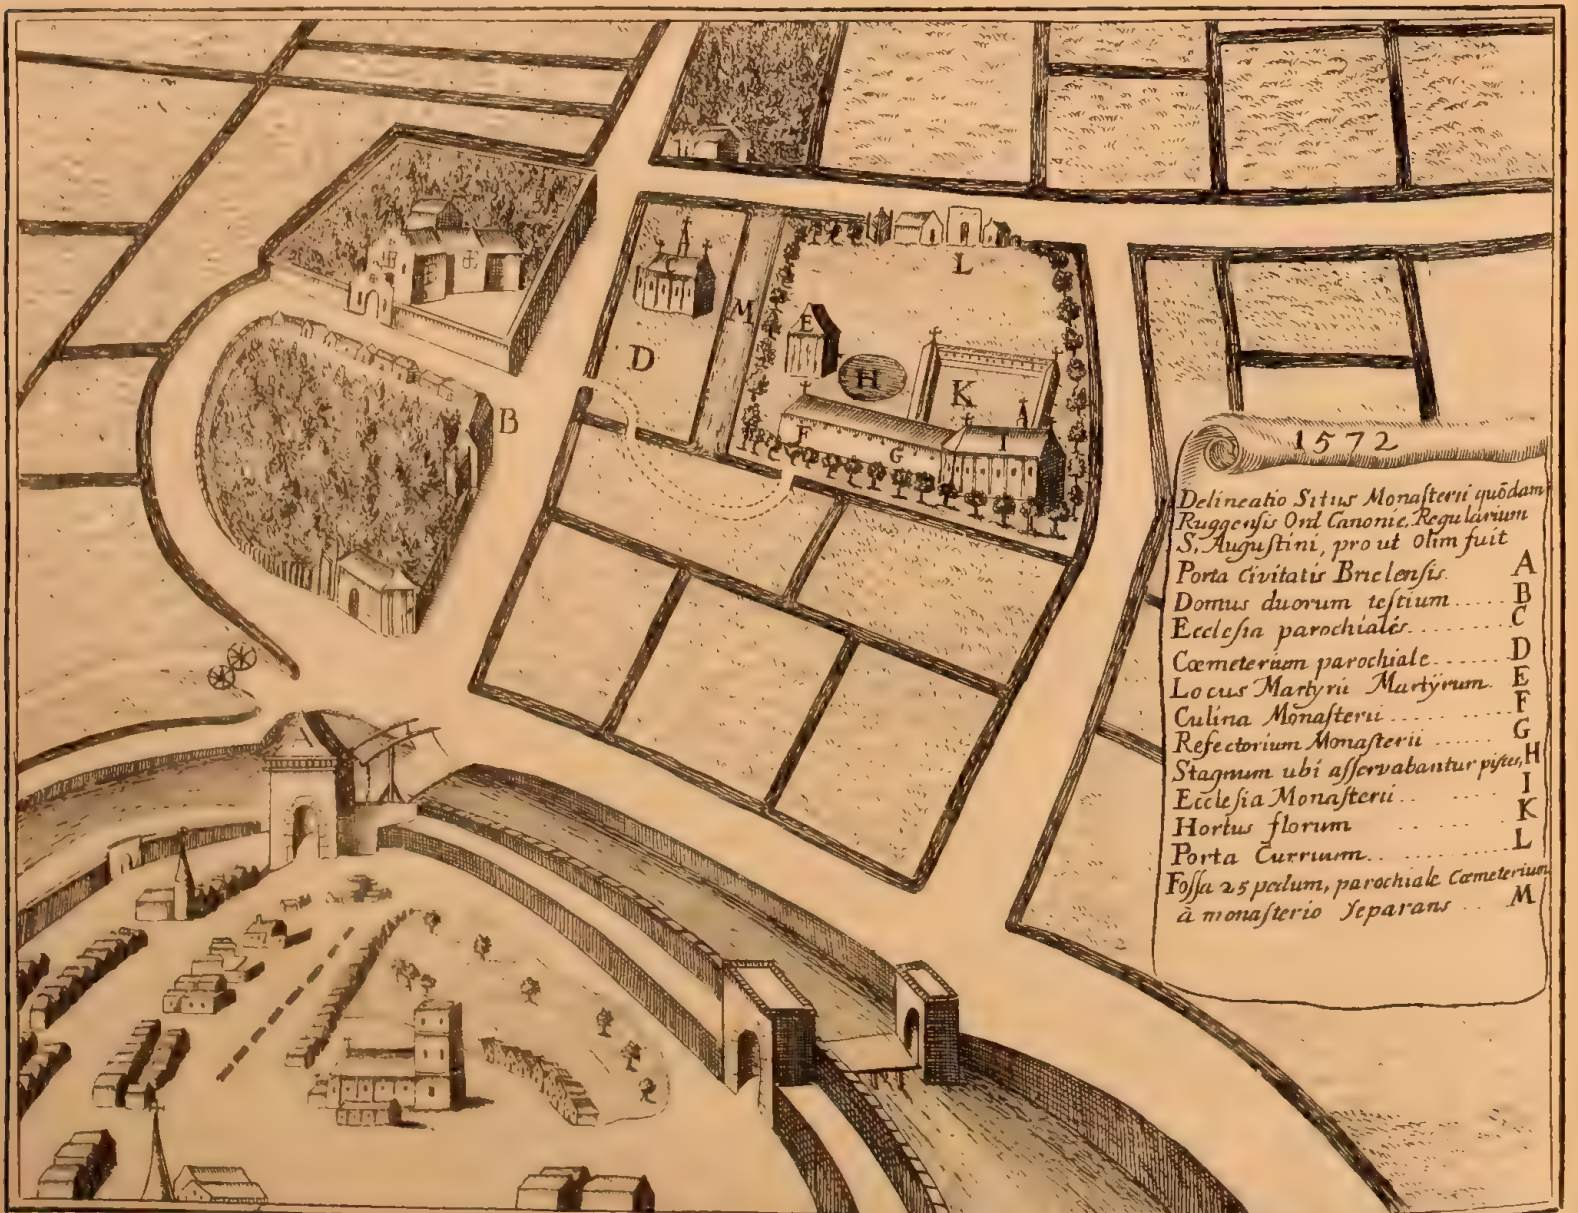 1572
Delineatio Situs Monasterii quōdam
Ruggensis Ord Canonic. Regularium
S. Augustini, pro ut Olim fuit
Porta Civitatis Brielensis. A
Domus duorum testium ..... B
Ecclesia parochialés ......... C
Cœmeterium parochiale ...... D
Locus Martyrii Martÿrum. E
Culina Monasterii ............. F
Refectorium Monasterii ...... G
Stagnum ubi asservabantur pisces, H
Ecclesia Monasterii .. ..... I
Hortus florum ...... ..... K
Porta Curruum .. .......... L
Fossa 25 pedum, parochiale Cœmeterium
à monasterio Separans .. M
C
L
M
E
D
H
K
B
F
G
I
A